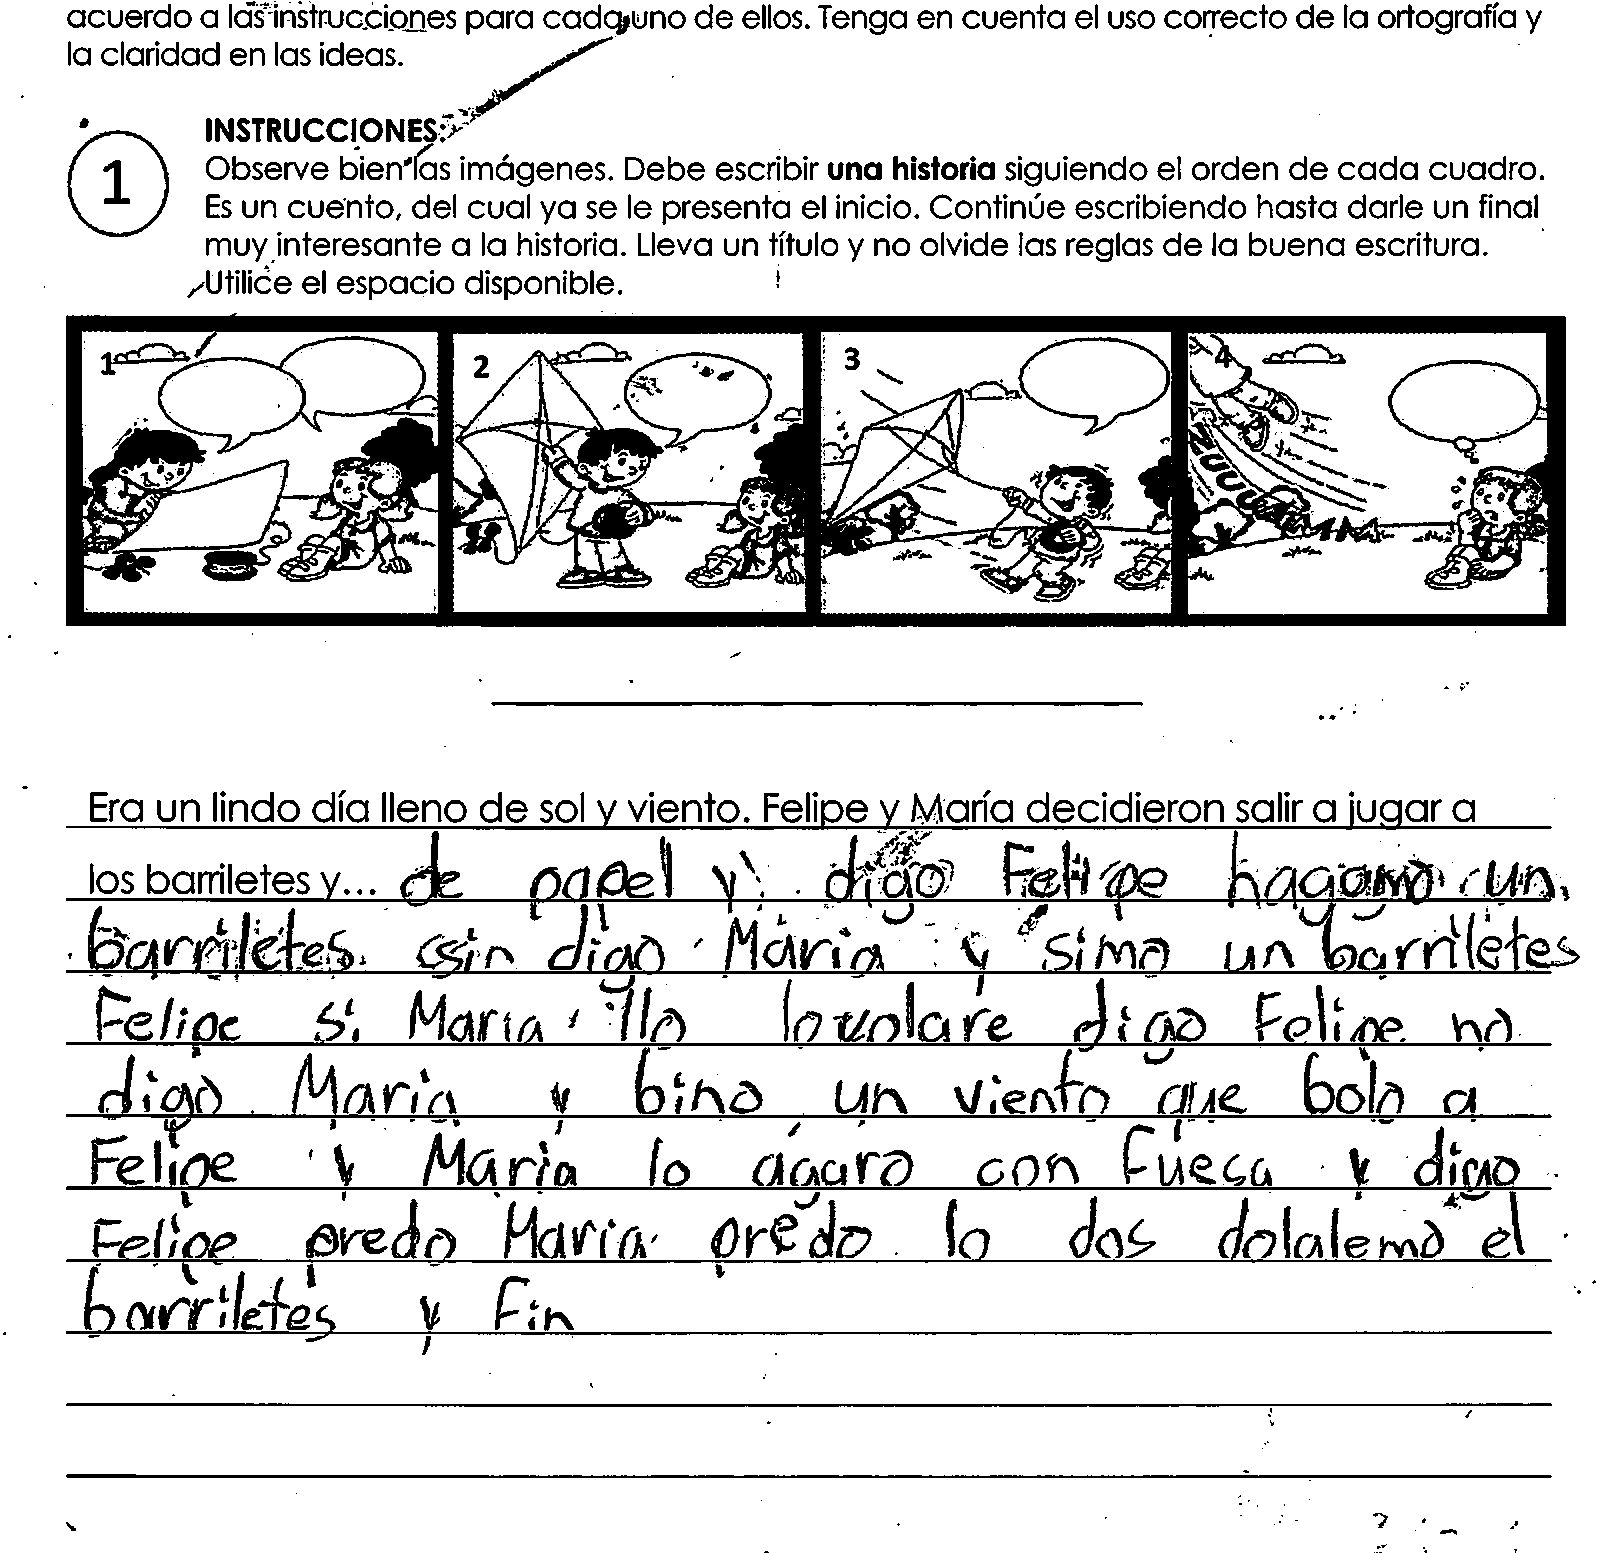 acuerdo a las instrucciones para cada uno de ellos. Tenga en cuenta el uso correcto de la ortografía y
la claridad en las ideas.
1
INSTRUCCIONES:
Observe bien las imágenes. Debe escribir una historia siguiendo el orden de cada cuadro.
Es un cuento, del cual ya se le presenta el inicio. Continúe escribiendo hasta darle un final
muy interesante a la historia. Lleva un título y no olvide las reglas de la buena escritura.
Utilice el espacio disponible.
1 2 3 4
ZUUUU
Era un lindo día lleno de sol y viento. Felipe y María decidieron salir a jugar a
los barriletes y... de papel y digo Felipe hagamo un
barriletes digo Maria y simo un barriletes
Felipe si Maria llo digo Felipe no
digo Maria y bino un viento que bolo a
Felipe y Maria lo agaro con Fuesa y digo
Felipe predo Maria predo lo dos dolalemo el
barriletes y Fin